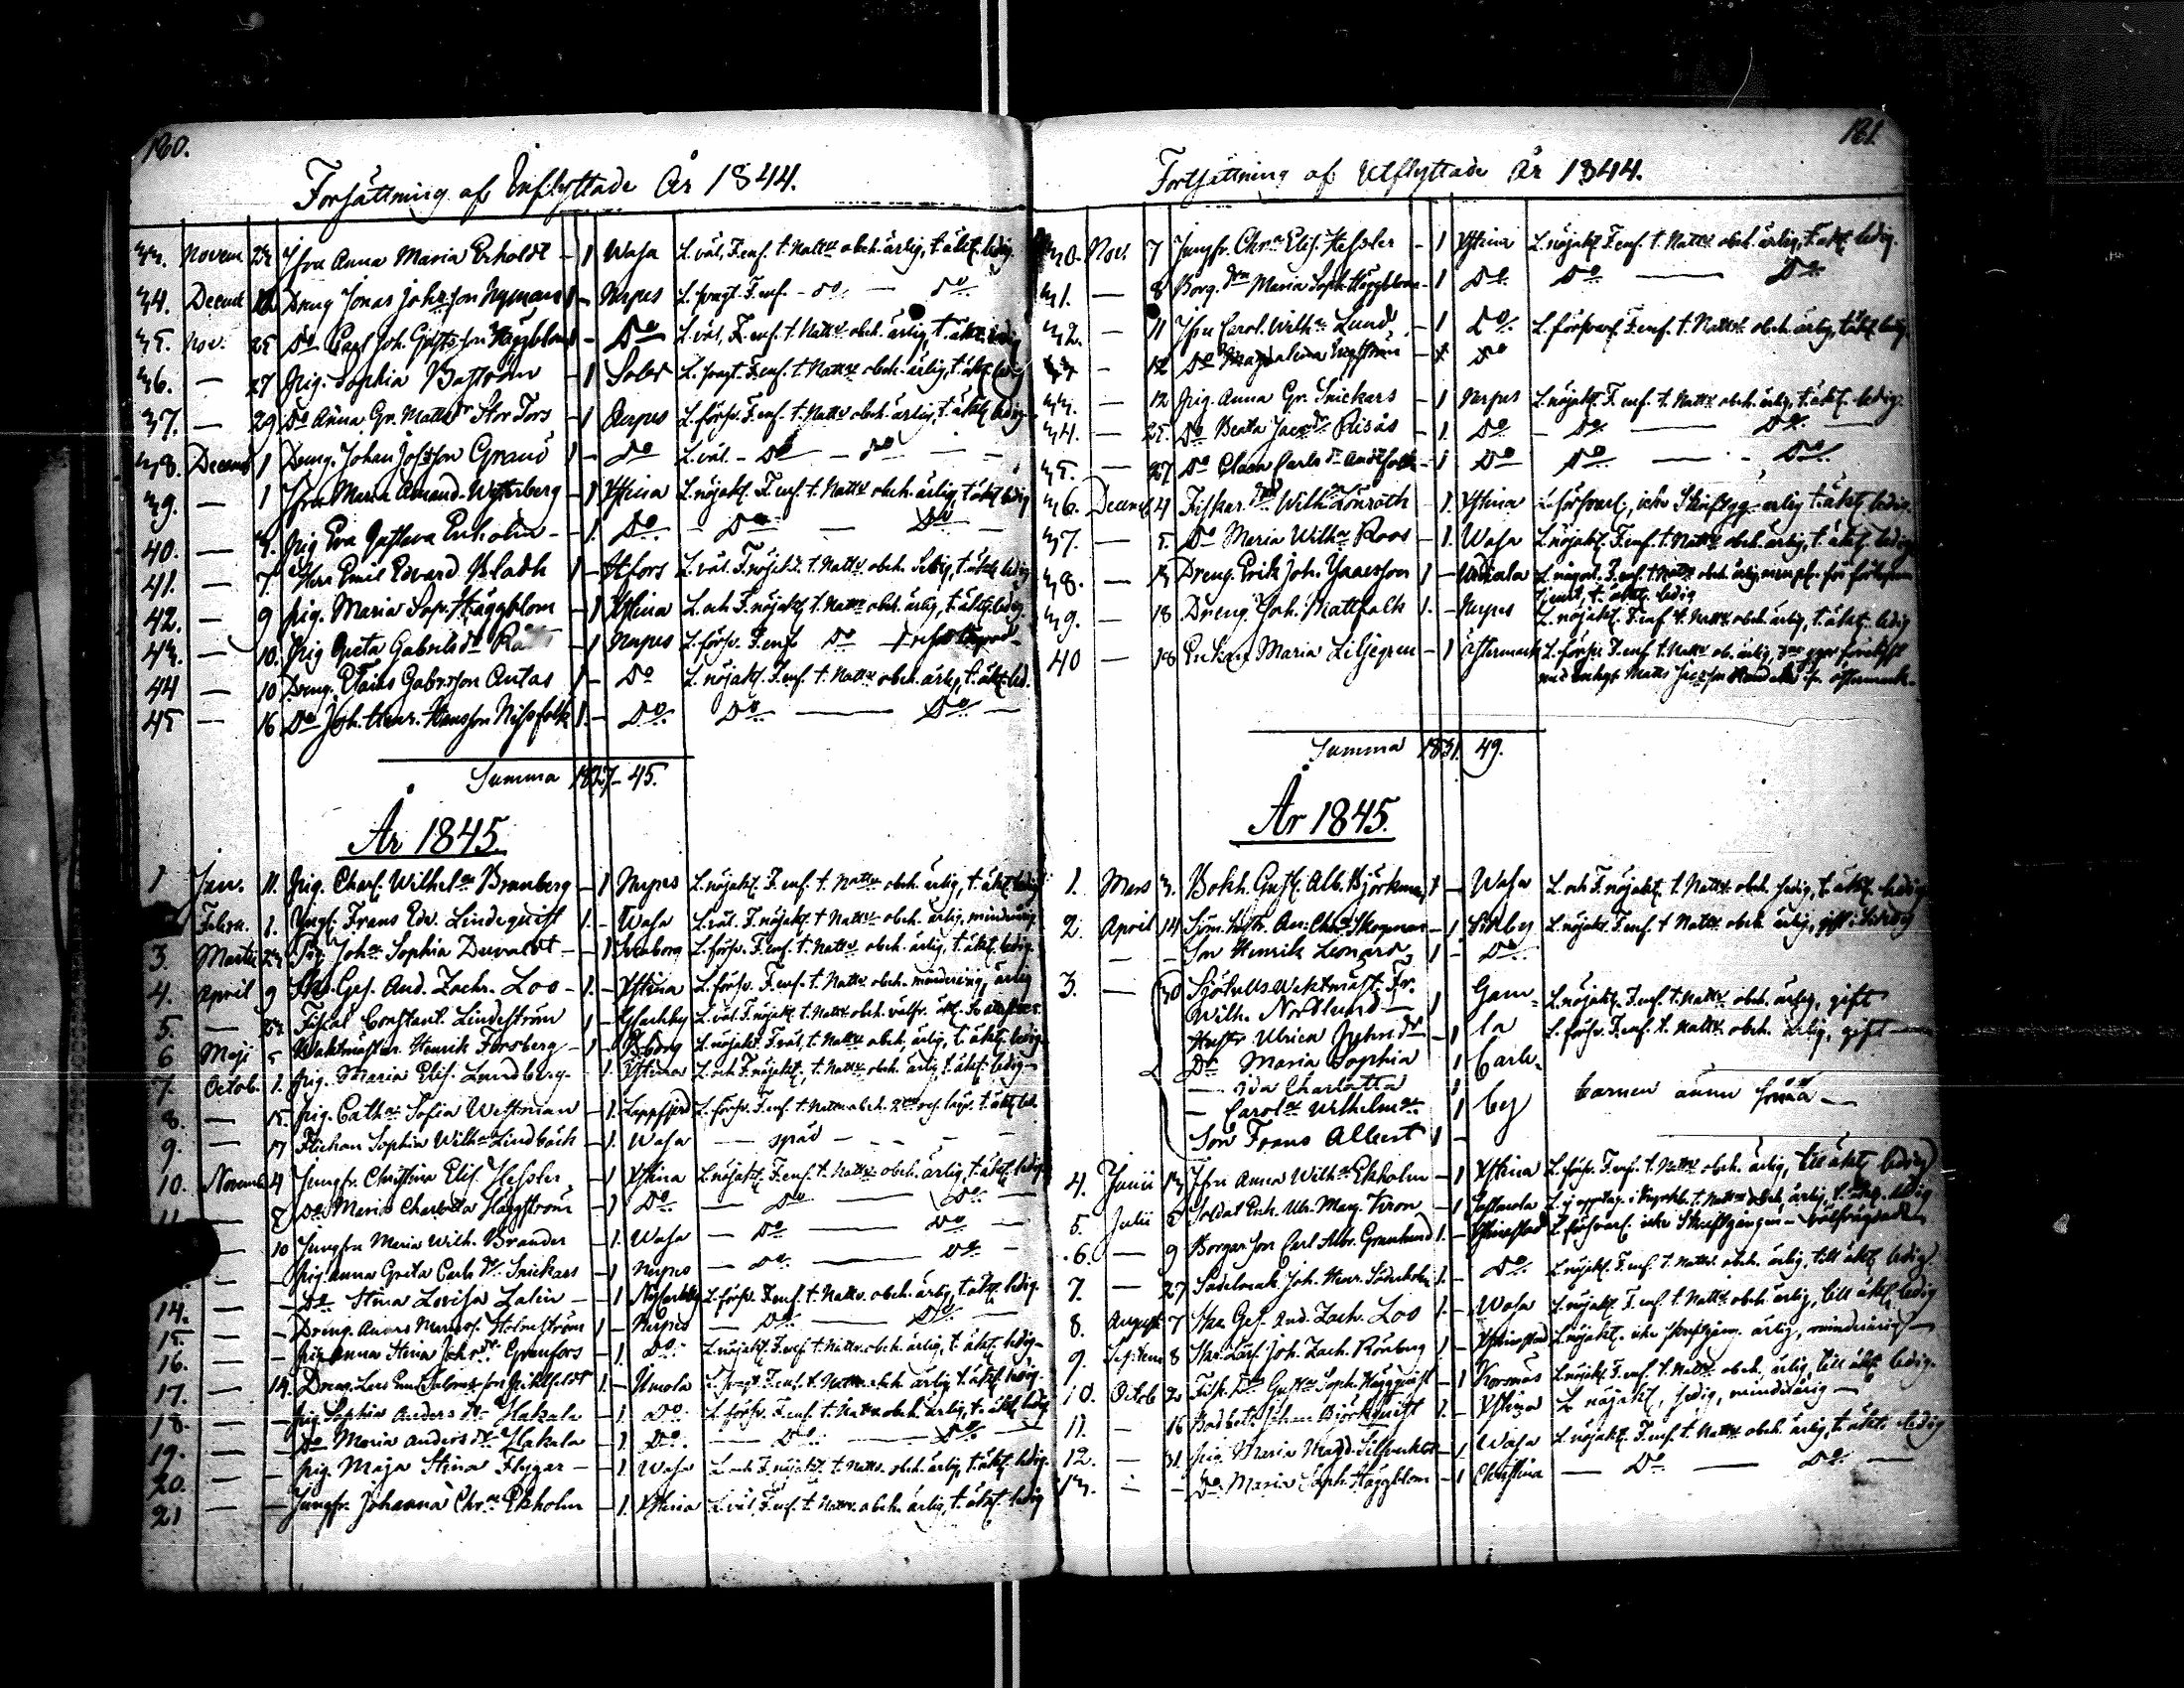 160.
Forsättning af Inflyttade År 1844.
33. Novem 23 Jfru Anna Maria Erholdt - 1 Wasa L. väl, F. enf. t. Nattv. obeh. ärlig, t. äkt. ledig
34. Decemb Dreng Jonas Johsson Nyman 1 - Nerpes L. svagt F. enf. - do - do
35. Nov. 25 Do Carl Joh. Gustfsson Häggblom 1 - Do L. väl, F. enf. t. Nattv. obeh. ärlig, t. äkt. ledig
36. — 27 Pig. Sophia Båström - 1 Solf L. svagt F. enf. t. Nattv. obeh. ärlig, t. äkt. ledig
37. — 29. Do Anna Gr. Mattsdr Stor Tors - 1 Nerpes L. försv. F. enf. t. Nattv. obeh. ärlig, t. äkt. ledig
38. Decemb 1 Dreng. Johan Johsson Granö 1 - do L. väl. - Do - do - -
39. — 1 Jfru Maria Amand. Westerberg - 1 Xstina L. nöjakt. F. enf. t. Nattv. obeh. ärlig, t. äkt. ledig
40. — Pig Eva Gustava Enholm - - 1. Do - Do — Do
41. — 7. Herr Emil Edvard Bladh 1 - Hfors L. väl. F. nöjakt. t. Nattv. obeh. t. äkt. ledig
42. — 9 Pig. Maria Sof. Häggblom - 1 Xstina L. och F. nöjakt. t. Nattv. obeh. ärlig, t. äkt. ledig
43. — 10. Pig Greta Gabrielsdr - 1 Nerpes L. försv. F. enf. Do
44 — 10 Dreng. Elaias Gabrsson Antas 1 - Do L. nöjakt. F. enf. t. Nattv. obeh. ärlig, t. äkt. led.
45 — 16 Do Joh. Henr. Hansson Nissfolk 1. - Do. Do — Do —
Summa 18 27 - 45.
År 1845.
1 Jan. 11. Pig. Charl. Wilhelma Branberg - 1 Nerpes L. nöjakt. F. enf. t. Nattv. obeh. ärlig, t. äkt. ledig
Febru. 1. Frans Edv. Lindequist 1. - Wasa L. väl. F. nöjakt. t Nattv. obeh. ärlig, minderårig
3. Martii Joha Sophia Duvaldt - - 1 Sveaborg L. försv. F. enf. t. Nattv. obeh. ärlig, t. äkt. ledig.
4. April 9 Ges. And. Zachr. Loo - 1. - Xstina L. försv. F. enf. t. Nattv. obeh. minderårig, ärlig
5. — Fiscal Constant. Lindeström 1 - L. väl. F. nöjakt. t. Nattv. obeh.
6 Maji 5 Waktmästar. Henrik Forsberg - 1. - L. nöjakt. F. väl, t. Nattv. obeh. ärlig, t. äkt. ledig
7. Octob. 1. Pig. Maria Elis. Lundberg - 1. Xstina L. och F. nöjakt., t. Nattv. obeh. ärlig, t. äkt. ledig -
8. — 15. Pig. Catha Sofia Westman - 1. Lappfjerd L. försv. F. enf. t. Nattv. obeh. t. äkt. led.
9. — 17 Flickan Sophia Wilha Lindbäck - 1. Wasa — späd - - -
10. Novemb 4 Jungfr. Christina Elis. Hessler - 1 Xstina L. nöjakt. F. enf. t. Nattv. obeh. ärlig, t. äkt. ledig
11 — 7 Do. Maria Charlotta Häggström - 1 Do — Do — Do —
— 10 Jungfru Maria Wilh. Brander - 1. Wasa — Do — Do —
— Pig. Anna Greta Carls dr Snickars - 1 Nerpes — Do — Do -
14. — - Do Stina Lovisa Zalin - 1 Nykarleby L. försv. F. enf. t. Nattv. obeh. ärlig, t. äkt. ledig.
15. — - Dreng. Anders Holmström 1 - Nerpes — Do — Do —
16. — - Pig Anna Stina Grönfors - 1. Do L. nöjakt. F. enf. t. Nattv. obeh. ärlig, t. äkt. ledig -
17. — 14. Dreng. Lars 1. - Umola L. svagt F. enf. t. Nattv. obeh. ärlig t. äkt. ledig.
18. — - Pig. Sophia Anders dr Hakala - 1. Do L. försv. F. enf. t. Nattv. obeh. ärlig, t. äkt. ledig
19. — - Do Maria Anders dr Hakala - 1. Do. — Do — Do —
20. — - Pig. Maja Stina Flygar - - 1. Wasa L. och F. nöjakt. t. Nattv. obeh. ärlig, t. äkt. ledig.
21 — - Jungfr. Johanna Chra Ekholm - 1. Xstina L. väl, F. enf. t. Nattv. obeh. ärlig, t. äkt. ledig
161.
Fortsättning af Utflyttade År 1844.
30. Nov. 7 Jungfr. Chra Elis. Hessler - 1 Xstina L. nöjakt. F. enf. t. Nattv. obeh. ärlig, t. äkt. ledig.
31. — 8 Borg. drn Maria Soph. Häggblom - 1 Do. Do — Do
32. - 11 Jfru Carol. Wilha Lund - 1 Do. L. försvarl. F. enf. t. Nattv. obeh. ärlig, t. äkt. ledig.
33 - 12 Do Magdalena Engström - x Do
33. - 12 Pig. Anna Gr. Snickars - 1 Nerpes L. nöjakt. F. enf. t. Nattv. obeh. ärlig, t. äkt. ledig.
34. — 25. Do Beata Jacobsdr Risås - 1. Do - Do — Do —
35. — 27 Do Clara Carls dr - 1 Do Do — - Do
36. Decemb 4 Fiskar. drn Wilha Lönroth - 1. Xstina L. försvarl., icke Skriftgg. ärlig t. äkt. ledig.
37. — 5. Do Maria Wilha Roos - 1. Wasa L. nöjakt. F. enf. t. Nattv. obeh. ärlig, t. äkt. ledig
38. — 13 Dreng. Erik Joh. 1 - L. F. enf. t Nattv. obeh. ärlig
t. äkt. ledig
39. — 18 Dreng. Joh. Mattfolk 1. - Nerpes L. nöjakt. F. enf. t. Nattv. obeh. ärlig, t. äkt. ledig
40 — 18 Enkan Maria Liljegren - 1 Östermark L. försv. F. enf. t. Nattv. ob. ärlig,
Matts östermark.
Summa 18 31. 49.
År 1845.
1. Mars 3. Bokh. Gust. Alb. Björkman 1 - Wasa L. och F. nöjakt. t. Nattv. obeh. sedig, t. äkt. ledig
2. April 14 Sjöm. hustr. An. Chra Skogman - 1 L. nöjakt. F. enf. t Nattv. obeh. ärlig, gift
— - Son Henrik Leonard 1 - Do.
3. — 30 Sjötulls Waktmäst. Fr.
Wilh. Nordlund - 1 Gam= L. nöjakt. F. enf. t. Nattv. obeh. ärlig, gift
Hustr Ulrica dr - 1 la L. försv. F. enf. t. Nattv. obeh. ärlig, gift -
Dr Maria Sophia 1 Carle=
— Ida Charlotta 1
— Carola Wilhelma 1 by barnen ännu små —
Son Frans Albert 1 -
4. Junii 13 Jfru Anna Wilha Ekholm - 1 Xstina L. försv. F. enf. t. Nattv. obeh. ärlig, till äkt. ledig
5. Julii Soldat Enk. Ulr. Marg. Kron - 1 Sastmola L. ärlig, t. äkt. ledig
6. — 9 Borgar son Carl Albr. Granlund 1. - Xstinestad L. försvarl. icke Skriftgången - välfrägdad
7. — 27 Sadelmak. Joh. Henr. Söderholm 1. - Do. L. nöjakt. F. enf. t. Nattv. obeh. ärlig, till äkt ledig
8. August 7 Ges. And. Zach. Loo 1. - Wasa L. nöjakt. F. enf. t. Nattv. obeh. ärlig, till äkt. ledig
9. Septem 8 Lärl. Joh. Zach. Rönberg 1 - Xstinestad L. nöjakt. icke skriftgång. ärlig, minderårig —
10. Octob 2 Fisk. drn Gusta Soph. Häggquist - 1 Korsnäs L. nöjakt. F. enf. t. Nattv. obeh. ärlig, till äkt. ledig.
11. - 16 Johan Björkquist 1. - Xstina L. nöjaktl., sedig, minderårig —
12. — 31. Pig. Maria Magd. - 1 Wasa L. nöjakt. F. enf. t. Nattv. obeh. ärlig, t. äkt. ledig
13. — - Do Maria Soph. Häggblom - 1 Christina — Do — Do —